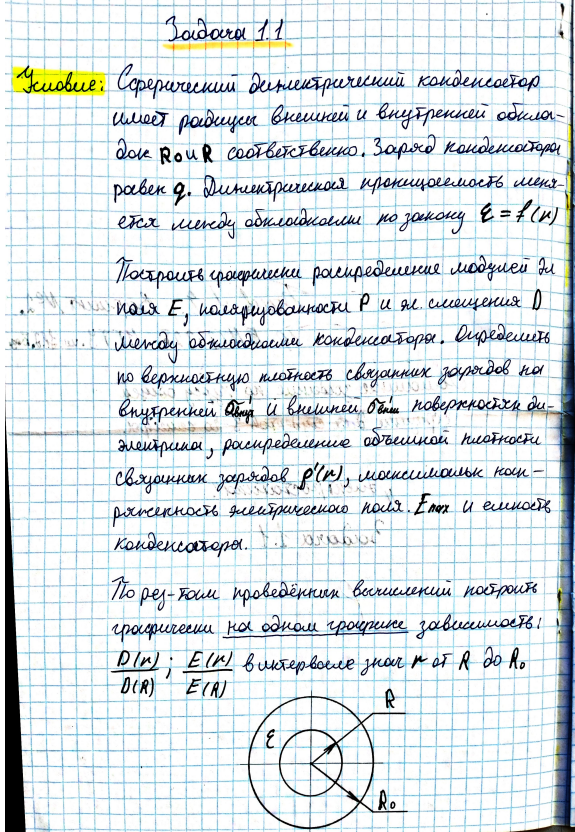 Задача 1.1
Условие: Сферический диэлектрический конденсатор
имеет радиусы внешней и внутренней обкла-
док R₀ и R соответственно. Заряд конденсатора
равен q. Диэлектрическая проницаемость меня-
ется между обкладками по закону ε = f(r)
Построить графически распределение модулей эл
поля E, поляризованности P и эл. смещения D
между обкладками конденсатора. Определить
поверхностную плотность связанных зарядов на
внутренней σ'внут и внешней σ'внеш поверхностях ди-
электрика, распределение объемной плотности
связанных зарядов ρ'(r), максимальн нап-
ряженность электрического поля Emax и емкость
конденсатора.
По рез-там проведённых вычислений построить
графически на одном графике зависимость:
D(r)/D(R); E(r)/E(R) в интервале знач r от R до R₀
R
ε
R₀